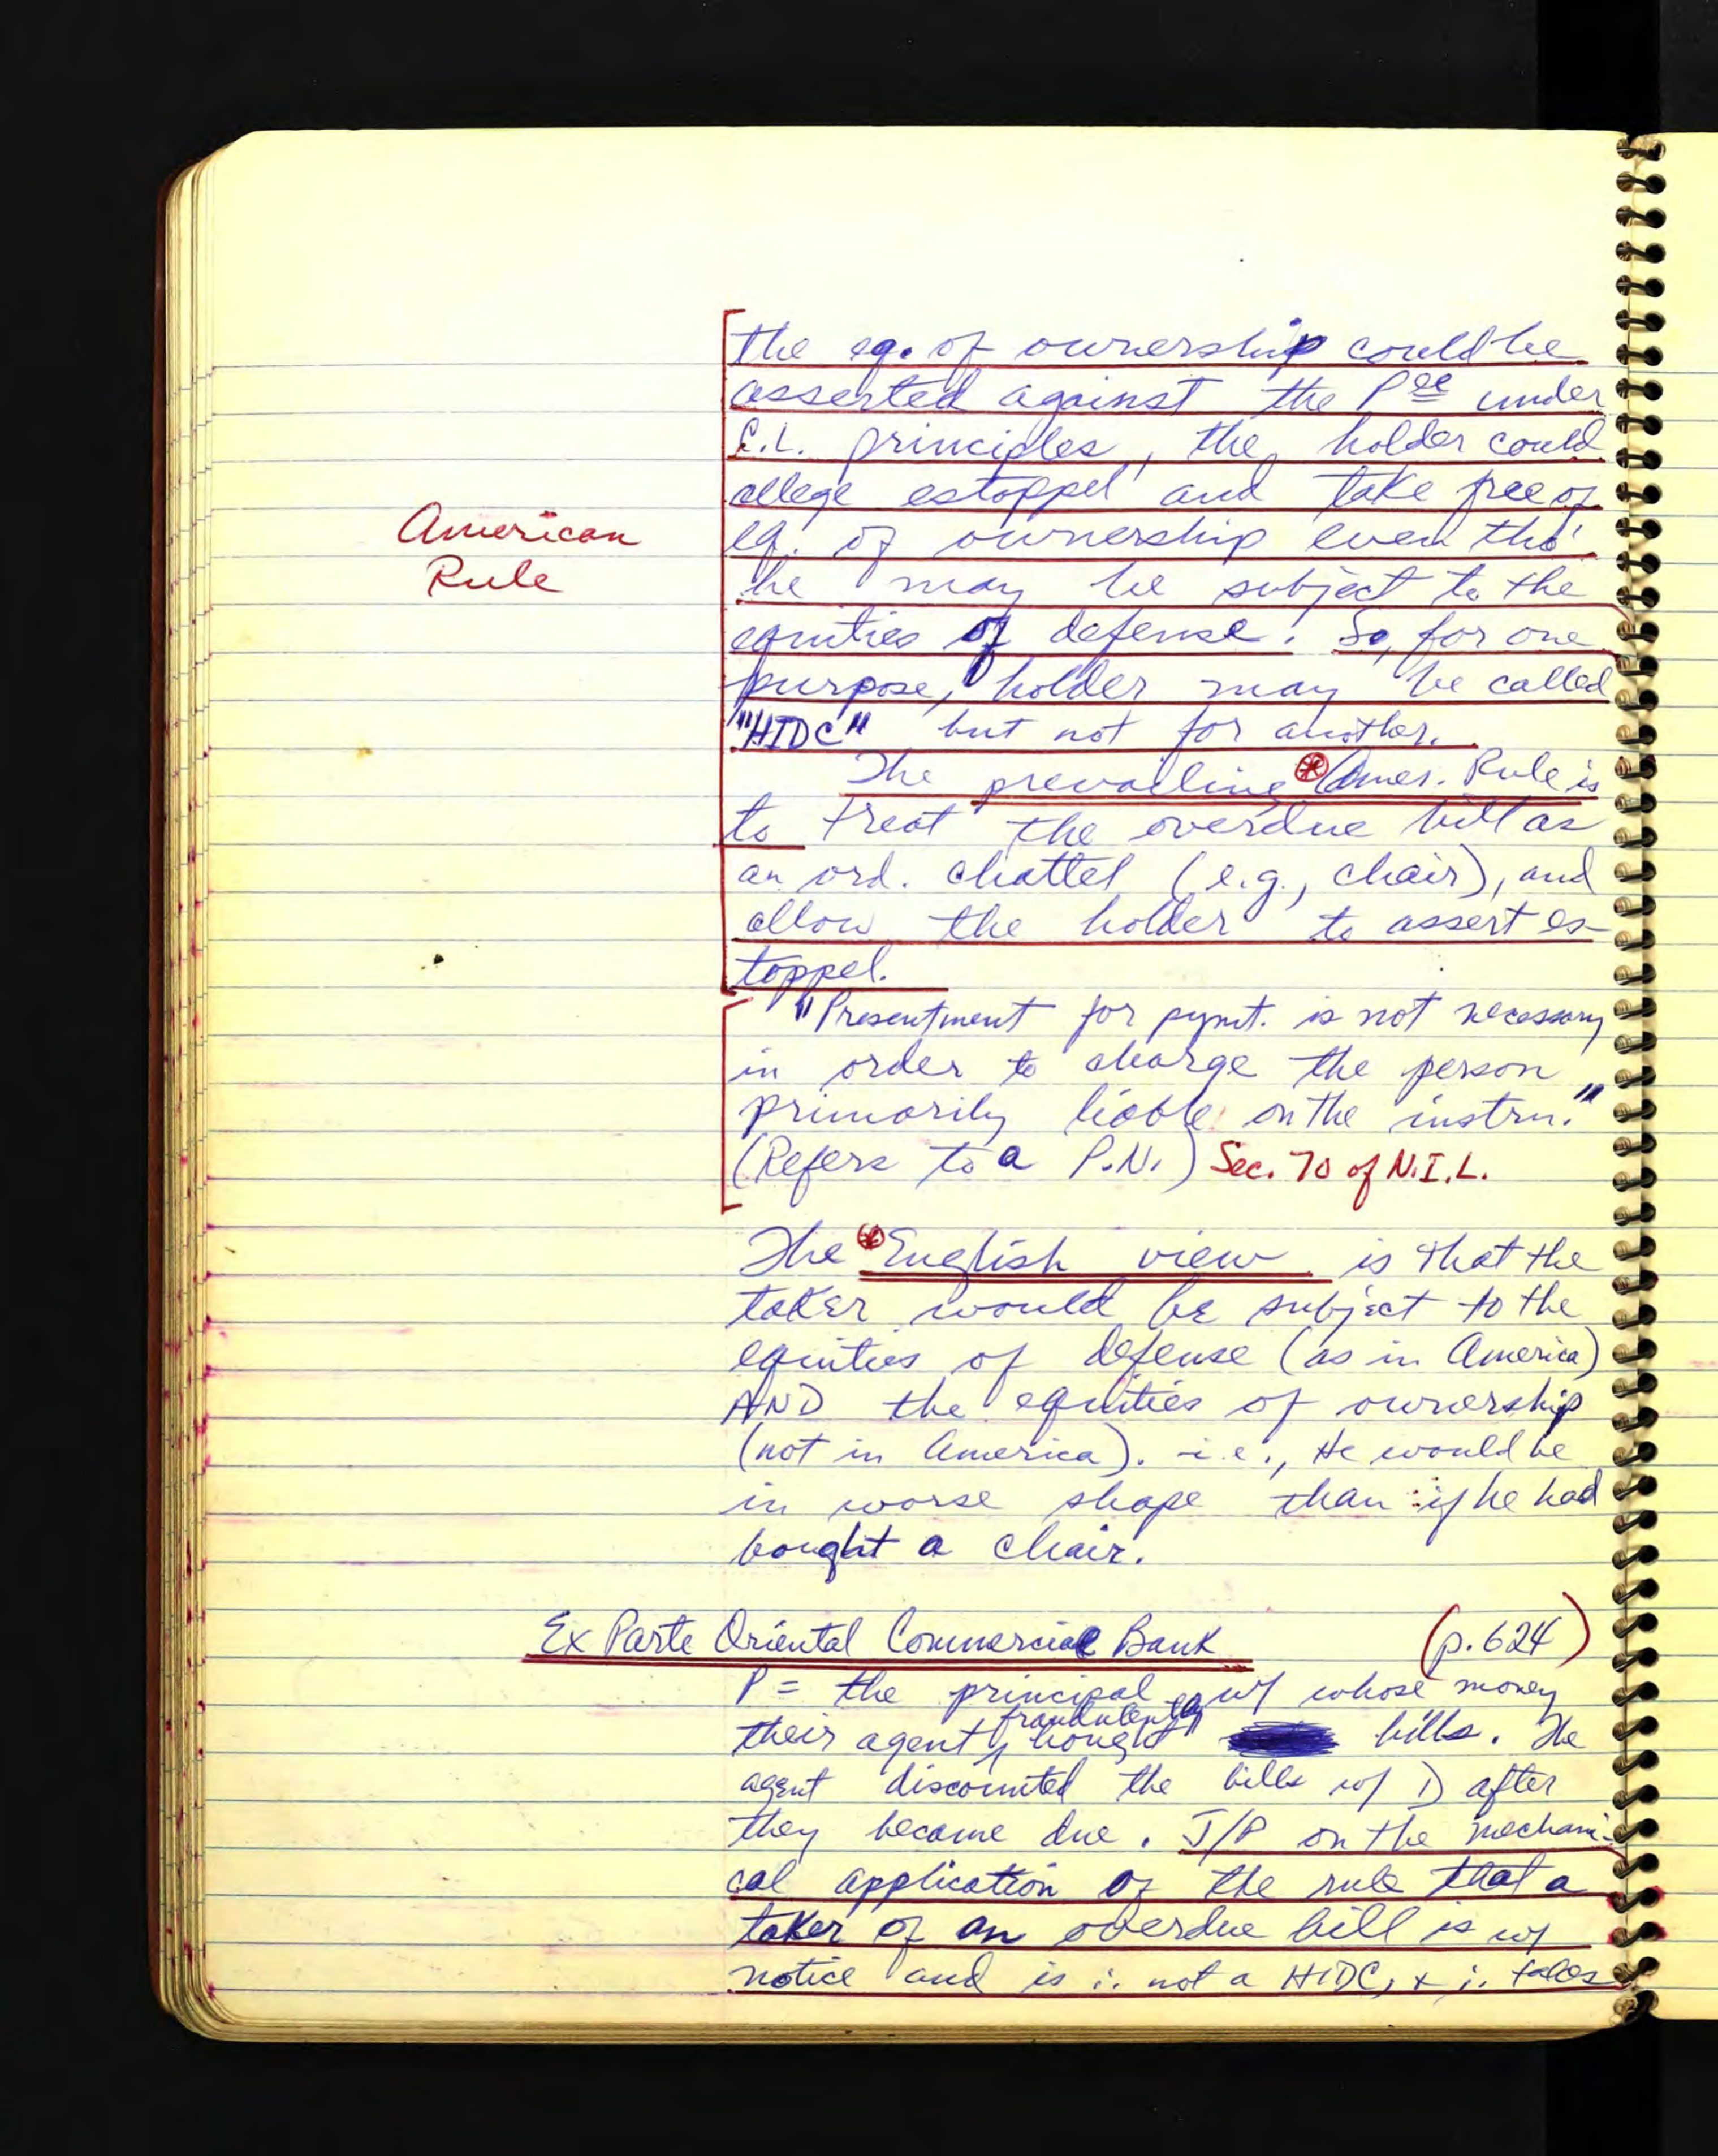 the eq. of ownership could be
asserted against the Pee under
C.L. principles, the holder could
allege estoppel and take free of
American
eq. of ownership even tho'
Rule
he may be subject to the
equities of defense. So, for one
purpose, holder may be called
"HIDC" but not for another.
The prevailing * Amer. Rule is
to treat the overdue bill as
an ord. chattel (e.g., chair), and
allow the holder to assert es-
toppel.
"Presentment for pymt. is not necessary
in order to charge the person
primarily liable on the instru."
(Refers to a P.N.) Sec. 70 of N.I.L.
The * English view is that the
taker would be subject to the
equities of defense (as in America)
AND the equities of ownership
(not in America). i.e., He would be
in worse shape than if he had
bought a chair.
Ex Parte Oriental Commercial Bank (p. 624)
P = the principal w/ whose money
fraudulently
their agent bought bills. The
agent discounted the bills w/ D after
they became due. J/P on the mechani-
cal application of the rule that a
taker of an overdue bill is w/
notice and is ∴ not a HIDC, + ∴ takes